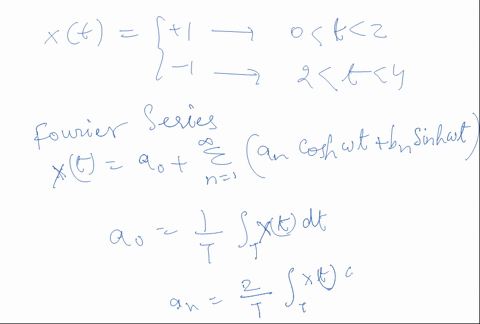 x(t) = { +1 → 0 < t < 2
-1 → 2 < t < 4
Fourier Series
x(t) = a₀ + ∑ₙ₌₁^∞ (aₙ cosnωt + bₙ sinnωt)
a₀ = 1/T ∫_T x(t) dt
aₙ = 2/T ∫_T x(t) c